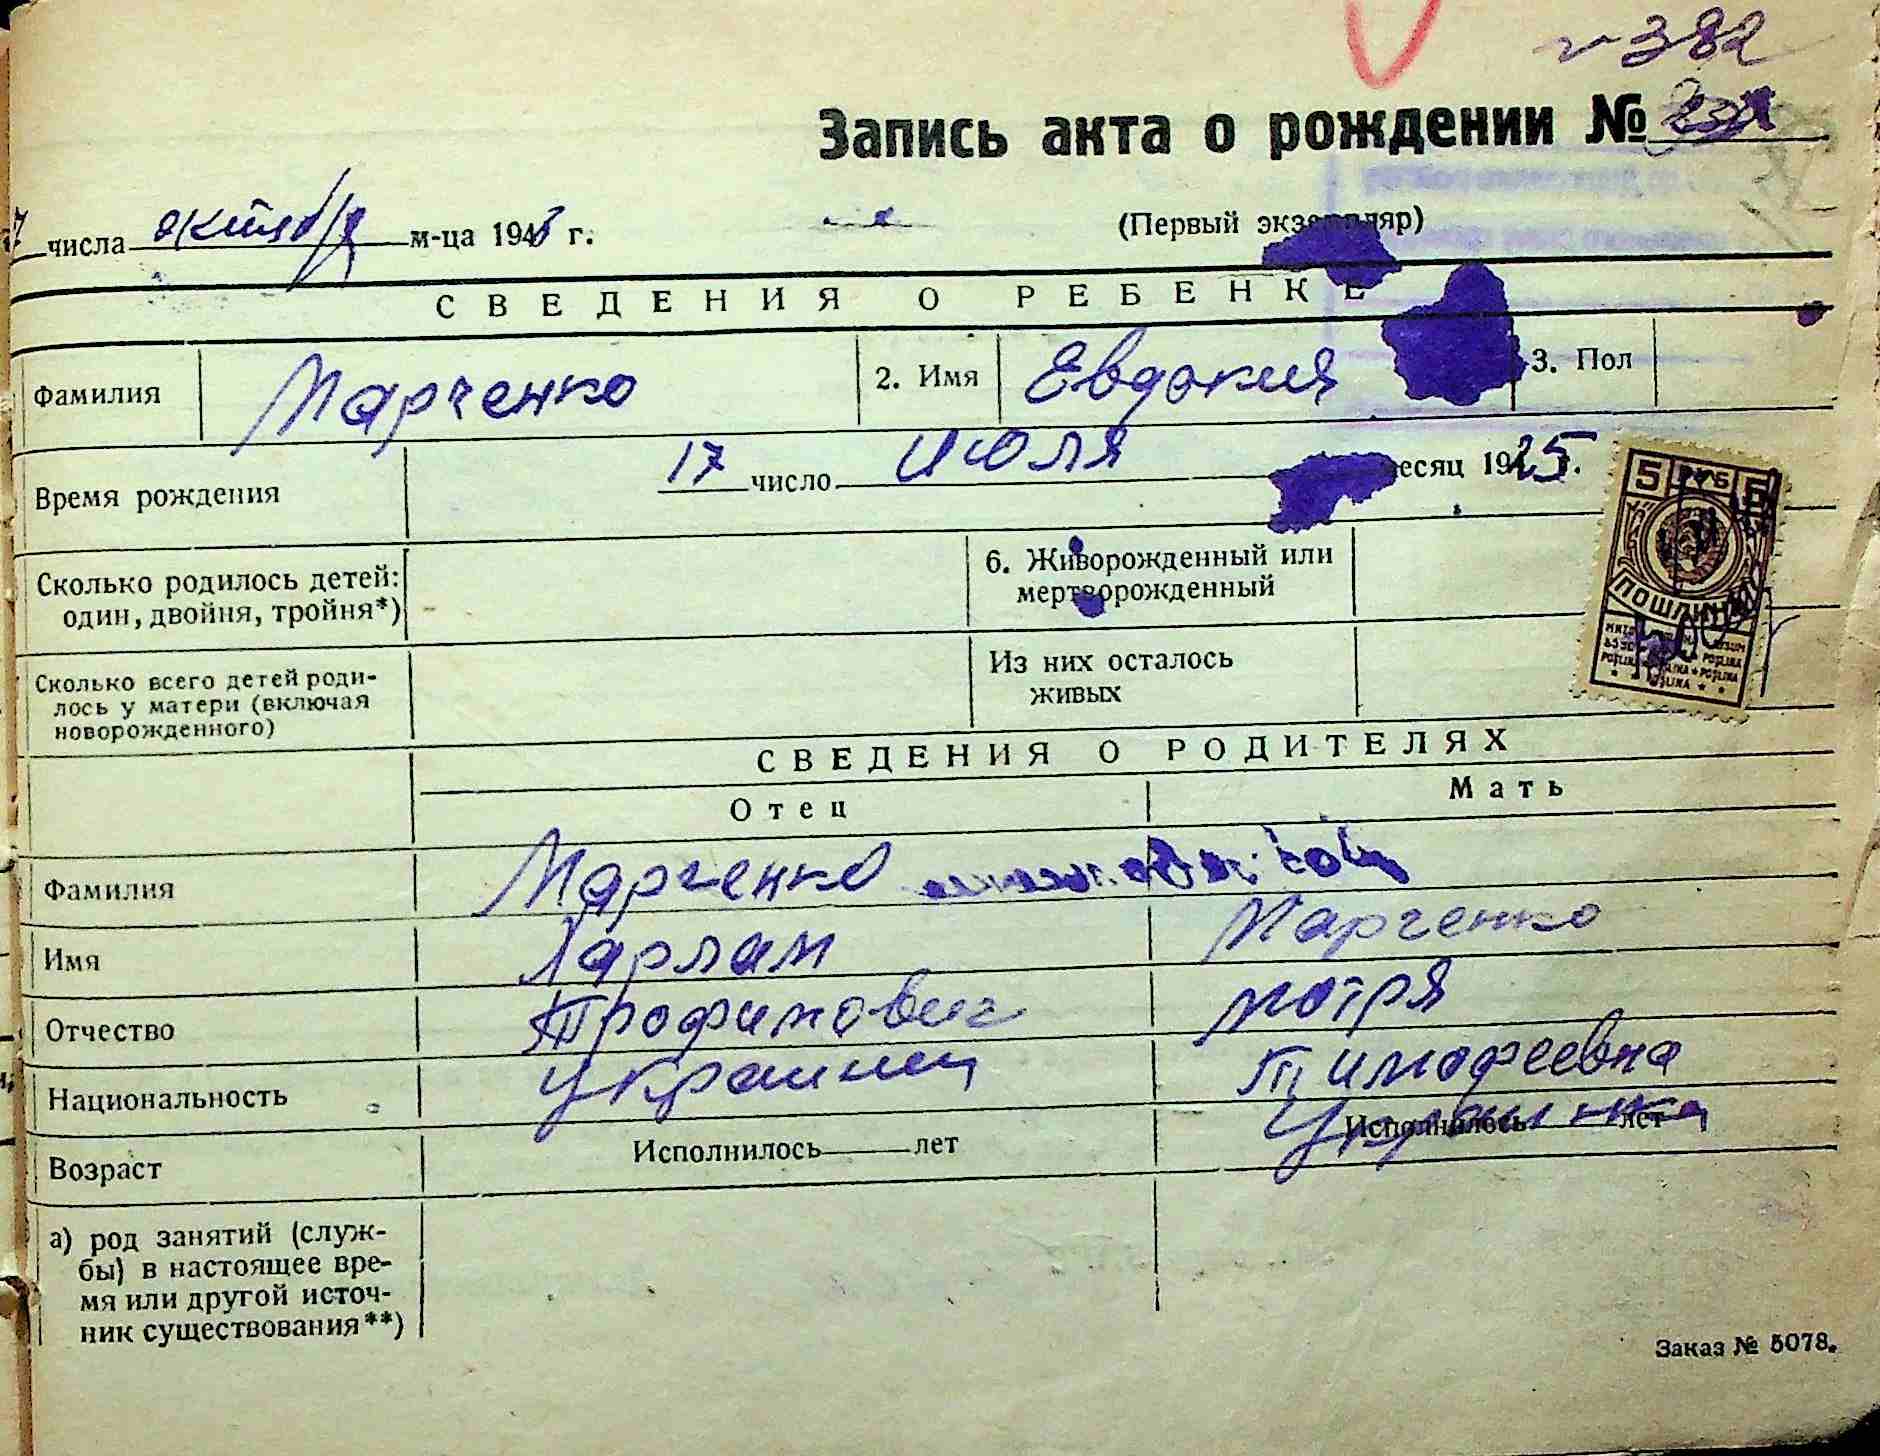 № 382
Запись акта о рождении №
7 числа октября м-ца 1943 г. (Первый экземпляр)
СВЕДЕНИЯ О РЕБЕНКЕ
Фамилия Марченко 2. Имя Евдокия 3. Пол
Время рождения 17 число июля месяц 1925 г.
5 РУБ 5
ПОШЛИНА
Сколько родилось детей: 6. Живорожденный или
один, двойня, тройня*) мертворожденный
Сколько всего детей роди- Из них осталось
лось у матери (включая живых
новорожденного)
СВЕДЕНИЯ О РОДИТЕЛЯХ
Отец Мать
Фамилия Марченко Марченко
Имя Харлам Мотря
Отчество Трофимович Тимофеевна
Национальность украинец Украинка
Возраст Исполнилось лет Исполнилось лет
а) род занятий (служ-
бы) в настоящее вре-
мя или другой источ-
ник существования**)
Заказ № 5078.